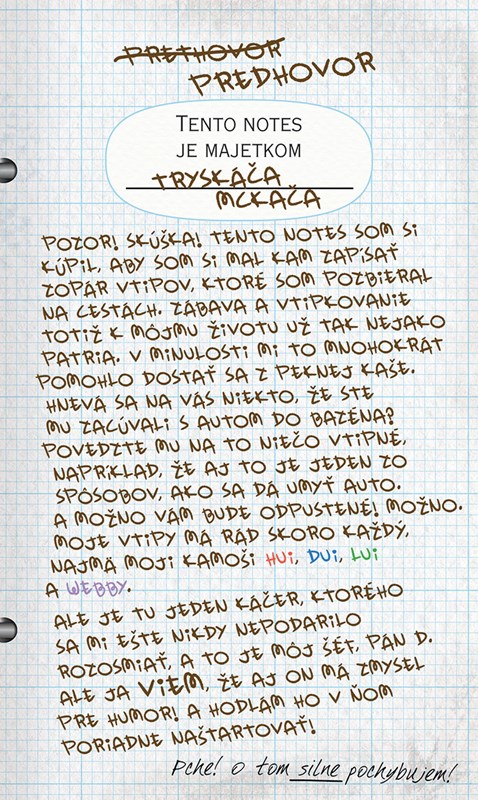 PRETHOVOR
PREDHOVOR
TENTO NOTES
JE MAJETKOM
TRYSKÁČA
MCKAČA
POZOR! SKÚŠKA! TENTO NOTES SOM SI
KÚPIL, ABY SOM SI MAL KAM ZAPÍSAŤ
ZOPÁR VTIPOV, KTORÉ SOM POZBIERAL
NA CESTÁCH. ZÁBAVA A VTIPKOVANIE
TOTIŽ K MÔJMU ŽIVOTU UŽ TAK NEJAKO
PATRIA. V MINULOSTI MI TO MNOHOKRÁT
POMOHLO DOSTAŤ SA Z PEKNEJ KAŠE.
HNEVÁ SA NA VÁS NIEKTO, ŽE STE
MU ZACÚVALI S AUTOM DO BAZÉNA?
POVEDZTE MU NA TO NIEČO VTIPNÉ,
NAPRÍKLAD, ŽE AJ TO JE JEDEN ZO
SPÔSOBOV, AKO SA DÁ UMYŤ AUTO.
A MOŽNO VÁM BUDE ODPUSTENÉ! MOŽNO.
MOJE VTIPY MÁ RÁD SKORO KAŽDÝ,
NAJMÄ MOJI KAMOŠI HUI, DUI, LUI
A WEBBY.
ALE JE TU JEDEN KÁČER, KTORÉHO
SA MI EŠTE NIKDY NEPODARILO
ROZOSMIAŤ, A TO JE MÔJ ŠÉF, PÁN D.
ALE JA VIEM, ŽE AJ ON MÁ ZMYSEL
PRE HUMOR! A HODLÁM HO V ŇOM
PORIADNE NAŠTARTOVAŤ!
Pche! o tom silne pochybujem!